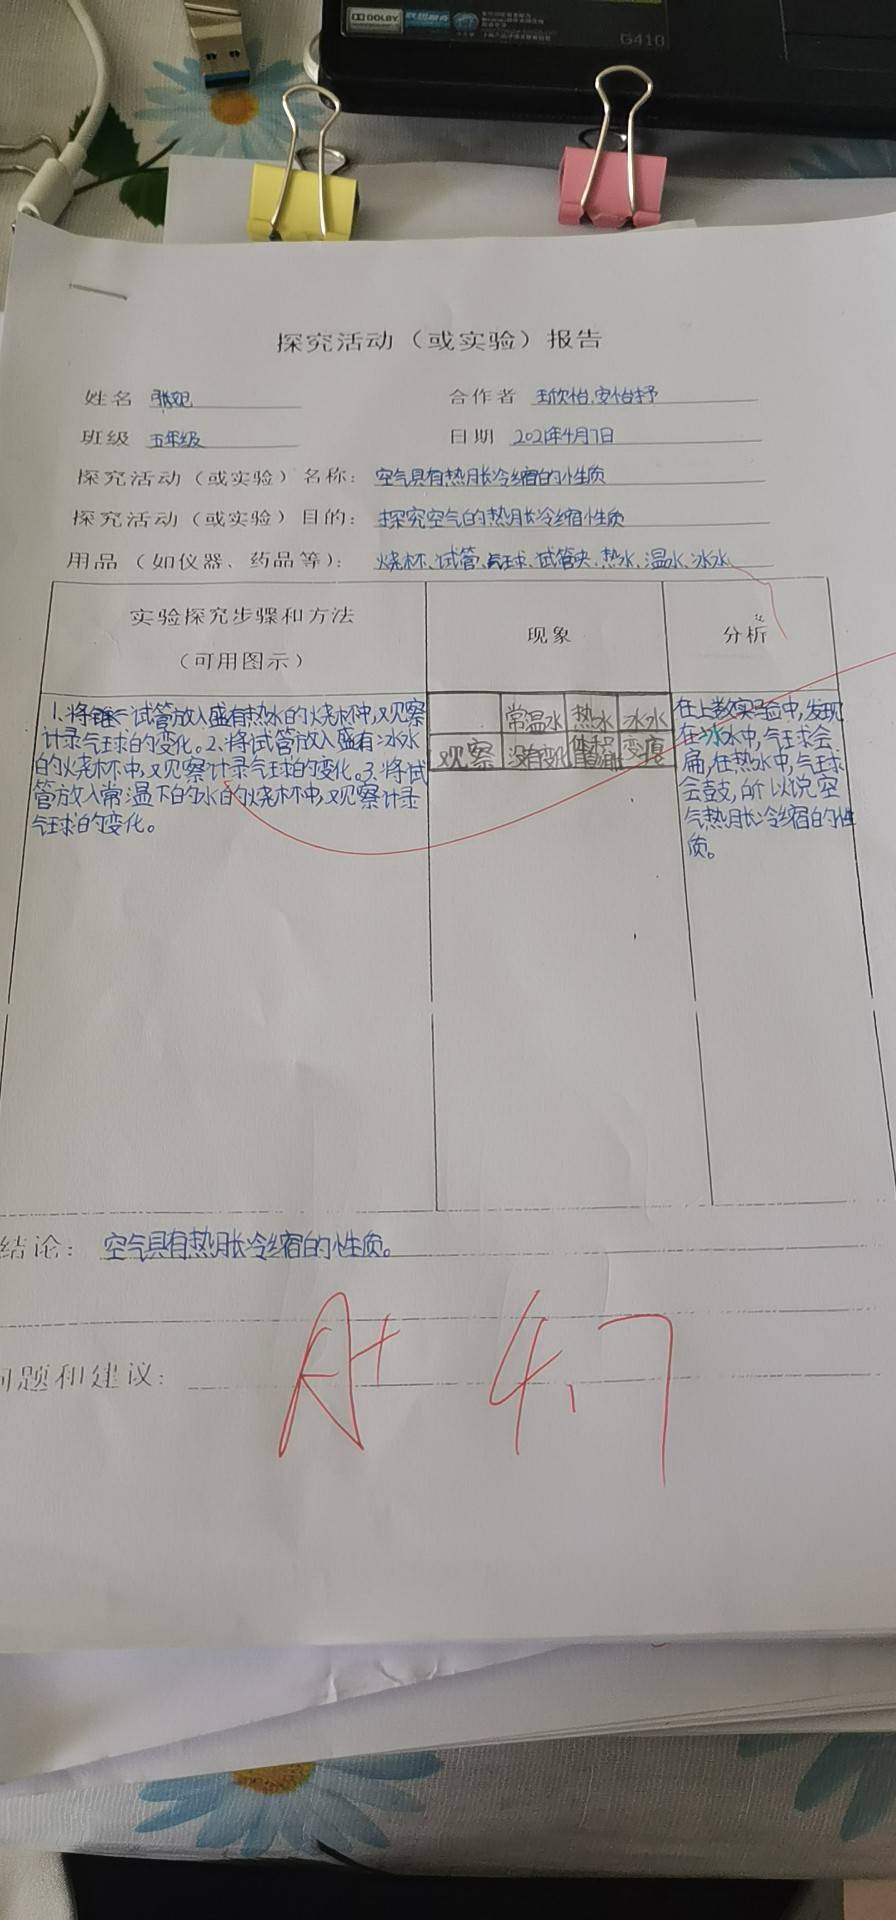 DOLBY
G410
探究活动（或实验）报告
姓名 张妃
合作者 王欣怡,安怡抒
班级 五年级
日期 2021年4月7日
探究活动（或实验）名称：空气具有热胀冷缩的性质
探究活动（或实验）目的：探究空气的热胀冷缩性质
用品（如仪器、药品等）：烧杯、试管、气球、试管夹、热水、温水、冰水
实验探究步骤和方法
（可用图示）
现象
分析
1、将试管放入盛有热水的烧杯中,观察
计录气球的变化。2、将试管放入盛有冰水
的烧杯中,观察计录气球的变化。3、将试
管放入常温下的水的烧杯中,观察计录
气球的变化。
常温水 热水 冰水
观察 没有变化 变扁
在上数实验中,发现
在冰水中,气球会
扁,在热水中,气球
会鼓,所以说空
气热胀冷缩的性
质。
结论：空气具有热胀冷缩的性质。
问题和建议：
A+ 4.7